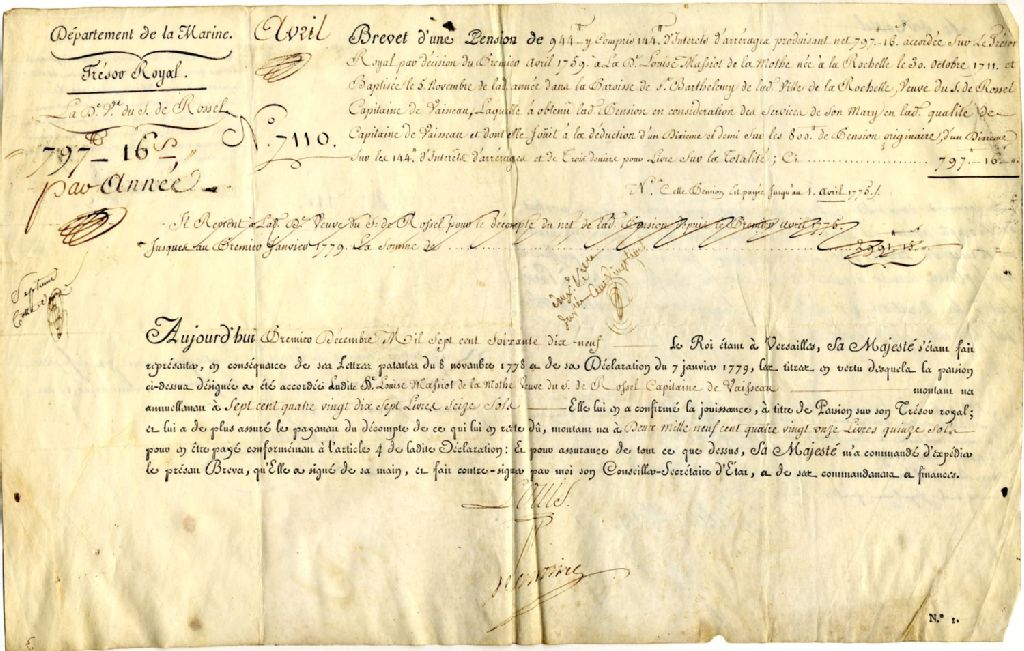 Département de la Marine.
Trésor Royal.
La De. Ve. du S. de Rossel
797tt 16s
par Année
Avril
No. 7110.
Brevet d'une Pension de 944tt y Compris 144tt d'Interets d'arrérages produisant net 797-16. accordée Sur Le Trésor
Royal par décision du Premier Avril 1759. à La De. Louise Massiot de la Mothe née à la Rochelle le 30. Octobre 1711. et
Baptisée le 5 Novembre de lad. année dans la Paroisse de St. Barthelemy de lad. Ville de la Rochelle, Veuve du S. de Rossel
Capitaine de Vaisseau, Laquelle à obtenu lad. Pension en considération des Services de son Mary en lad. qualité De
Capitaine de Vaisseau et dont elle Jouit à la déduction d'un Dixieme et demi sur les 800tt de Pension originaire, d'un Dixieme
Sur les 144tt d'Interêts d'arrerages et de Trois deniers pour Livre Sur la Totalité ; Ci ........ 797tt 16s
Na. Cette Pension Est payée Jusqu'au 1. avril 1775.
Il Revient à Lad. De. Veuve du S. de Rossel pour le décompte du net de lad. Pension depuis le Premier avril 1775.
Jusques au Premier Janvier 1779. La Somme de ........ 2991tt 15s
Septieme
Aujourd'hui Premier Décembre Mil Sept cent Soixante dix-neuf le Roi étant à Versailles, Sa Majesté s'étant fait
représenter, en conséquence de ses Lettres patentes du 8 novembre 1778 & de sa Déclaration du 7 janvier 1779, les titres en vertu desquels la pension
ci-dessus désignée a été accordée Ladite De. Louise Massiot de la Mothe Veuve du S. de Rossel Capitaine de Vaisseau montant net
annuellement à Sept cent quatre vingt dix Sept Livres Seize Sols Elle lui en a confirmé la jouissance, à titre de Pension sur son Trésor royal;
et lui a de plus assuré le payement du décompte de ce qui lui en reste dû, montant net à Deux mille neuf cent quatre vingt onze Livres quinze Sols
pour en être payé conformément à l'article 4 de ladite Déclaration: Et pour assurance de tout ce que dessus, Sa Majesté m'a commandé d'expédier
le présent Brevet, qu'Elle a signé de sa main, et fait contre-signer par moi son Conseiller-Secrétaire d'État, & de ses commandemens et finances.
Louis.
N.º 1.